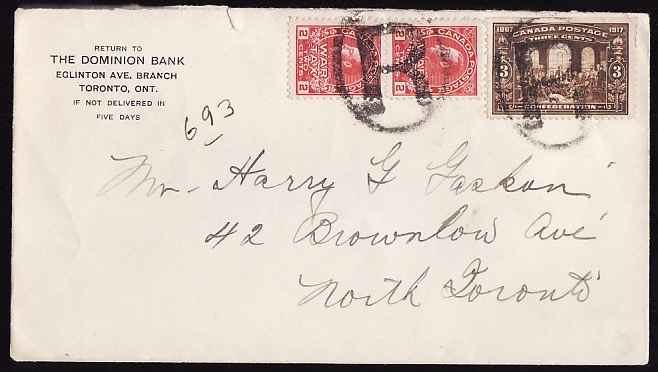 RETURN TO
THE DOMINION BANK
EGLINTON AVE. BRANCH
TORONTO, ONT.
IF NOT DELIVERED IN
FIVE DAYS
693
CANADA POSTAGE
WAR TAX
2 CENTS 2
CANADA POSTAGE
WAR TAX
2 CENTS 2
1867 CANADA POSTAGE 1917
THREE CENTS
3 3
CONFEDERATION
R
Mr. Harry G Gaskon
42 Brownlow Ave
North Toronto